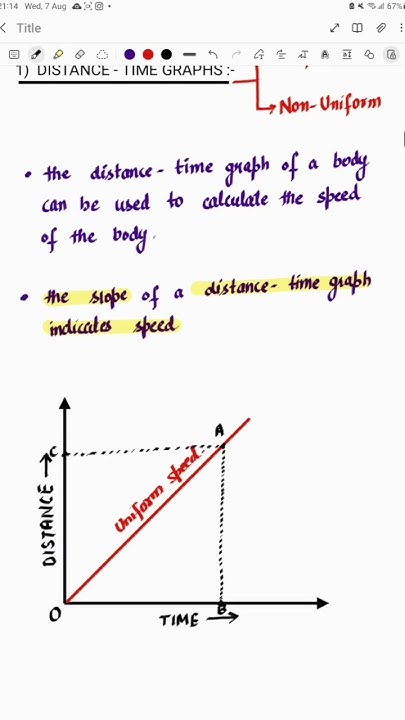 21:14 Wed, 7 Aug
67%
Title
1) DISTANCE - TIME GRAPHS :-
Non-Uniform
• the distance - time graph of a body
can be used to calculate the speed
of the body.
• the slope of a distance - time graph
indicates speed
A
C
Uniform speed
DISTANCE
O
B
TIME